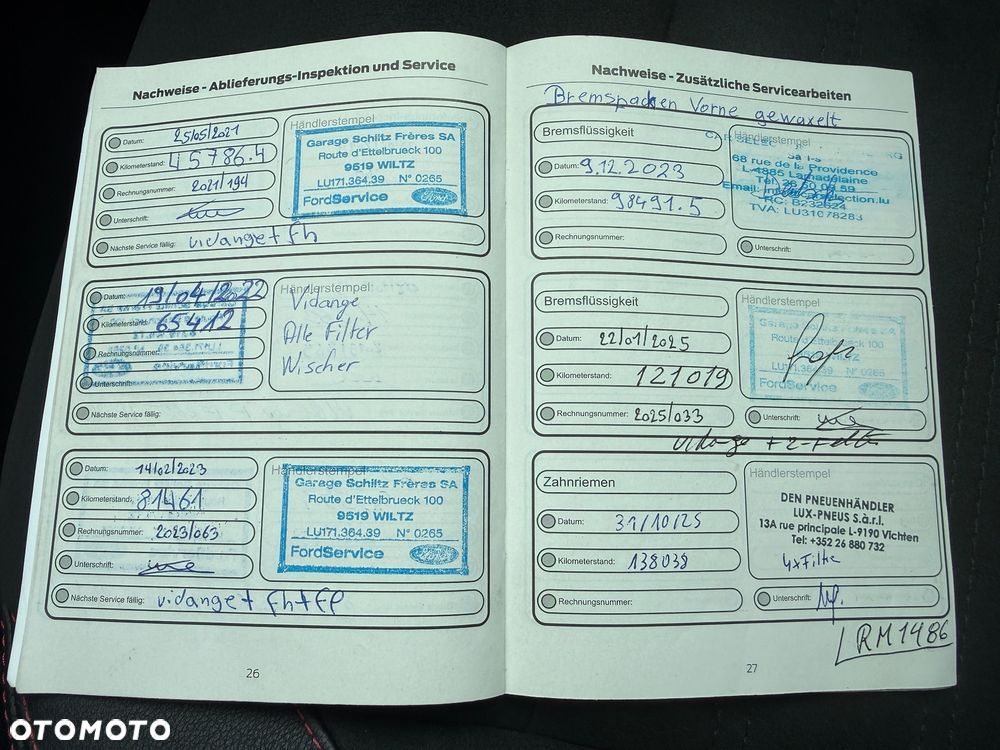 Nachweise - Ablieferungs-Inspektion und Service
Datum: 25/05/2021
Kilometerstand: 45786.4
Rechnungsnummer: 2021/194
Unterschrift:
Nächste Service fällig: vidange + fh
Händlerstempel
Garage Schiltz Frères SA
Route d'Ettelbrueck 100
9519 WILTZ
LU171.364.39 N° 0265
FordService Ford
Datum: 19/04/2022
Kilometerstand: 65412
Rechnungsnummer:
Unterschrift:
Nächste Service fällig:
Händlerstempel
Vidange
Alle Filter
Wischer
Datum: 14/02/2023
Kilometerstand: 81461
Rechnungsnummer: 2023/063
Unterschrift:
Nächste Service fällig: vidange + fh + fp
Händlerstempel
Garage Schiltz Frères SA
Route d'Ettelbrueck 100
9519 WILTZ
LU171.364.39 N° 0265
FordService Ford
26
Nachweise - Zusätzliche Servicearbeiten
Bremspacken Vorne gewaxelt
Bremsflüssigkeit
Datum: 9.12.2023
Kilometerstand: 98491.5
Rechnungsnummer:
Händlerstempel
68 rue de la Providence
L-4885 Lamadelaine
Unterschrift:
Bremsflüssigkeit
Datum: 22/01/2025
Kilometerstand: 121019
Rechnungsnummer: 2025/033
Händlerstempel
Garage Schiltz Frères SA
Route d'Ettelbrueck 100
9519 WILTZ
LU171.364.39 N° 0265
FordService
Unterschrift:
Zahnriemen
Datum: 31/10/25
Kilometerstand: 138038
Rechnungsnummer:
Händlerstempel
DEN PNEUENHÄNDLER
LUX-PNEUS S.à.r.l.
13A rue principale L-9190 Vichten
Tel: +352 26 880 732
4xFilter
Unterschrift:
RM1486
27
OTOMOTO